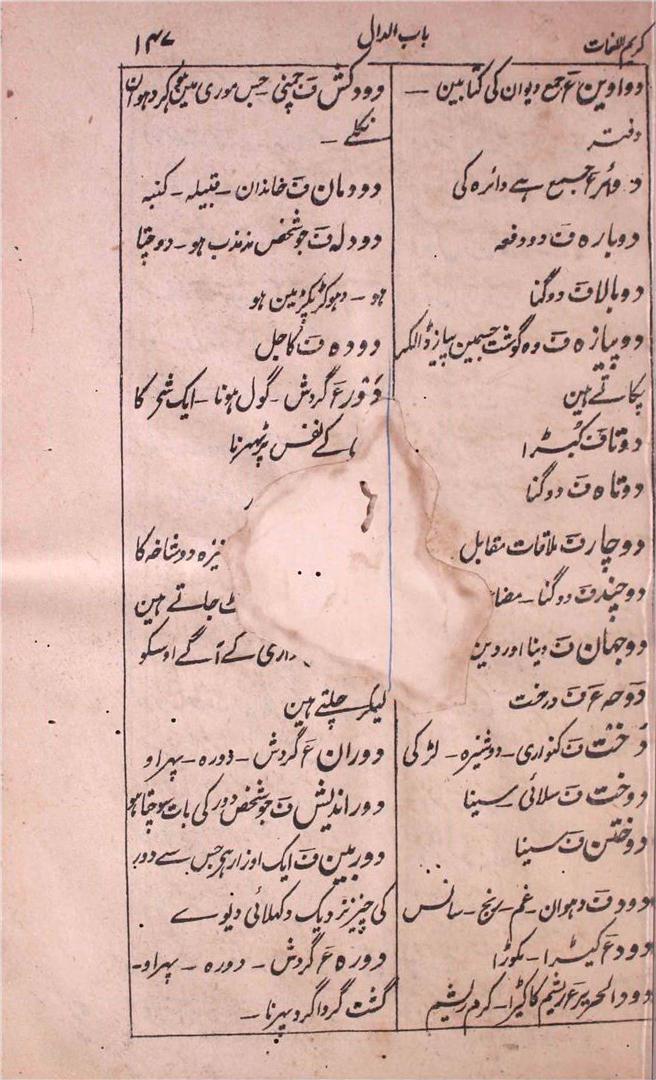 کریم اللغات
باب الدال
۱۴۷
دواوین ع جمع دیوان کی کتابین ـ
دفتر
دوائر ع جمع ہے دائرہ کی
دوبارہ ف دو دفعہ
دوبالا ف دوگنا
دوپیازہ ف وہ گوشت جسمین پیاز ڈالکر
پکاتے ہین
دوتا ف کبڑا
دوتاہ ف دوگنا
دوچار ف ملاقات مقابل
دوچند ف دوگنا ـ
دوجہان ف دینا اور دین
دَوحہ ع ف درخت
دُخت ف کنواری ـ دوشیزہ ـ لڑکی
دوخت ف سلائی سینا
دوختن ف سینا
دود ف دہوان ـ غم ـ رنج ـ سانس
دود ع کیڑا ـ مکوڑا
دودالحریر ع ریشم کا کیڑا ـ کرم ریشم
دودکش ف چمنی ـ جس موری مین ہوکر دہوان
نکلے ـ
دودمان ف خاندان ـ قبیلہ ـ کنبہ
دودلہ ف جو شخص مذبذب ہو ـ دوچتا
ہو ـ دہوکڑ پکڑ مین ہو
دودہ ف کاجل
دَور ع گردش ـ گول ہونا ـ ایک شے کا
کے نفس پر پھرنا
نیزہ دوشاخہ کا
جاتے ہین
داری کے آگے اوسکو
لیکر چلتے ہین
دوران ع گردش ـ دورہ ـ پہراو
دوراندیش ف جو شخص دور کی بات سوچتا ہو
دوربین ف ایک اوزار ہی جس سے دور
کی چیز نزدیک دکہلائی دیوے
دورہ ع گردش ـ دورہ ـ پہراو ـ
گشت گرداگرد پہرنا ـ